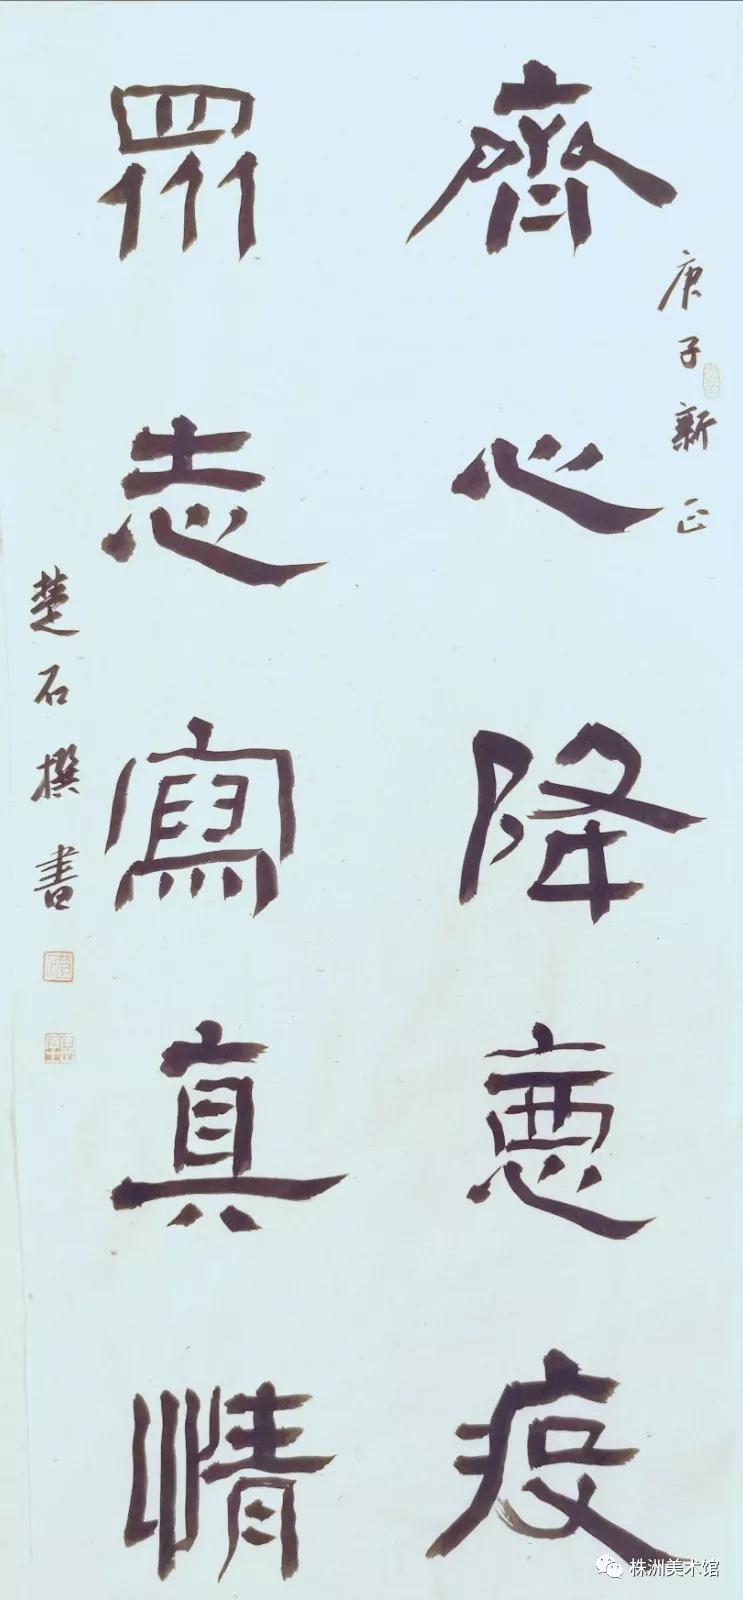 庚子新正
齊心降惡疫
眾志寫真情
楚石撰書
株洲美术馆